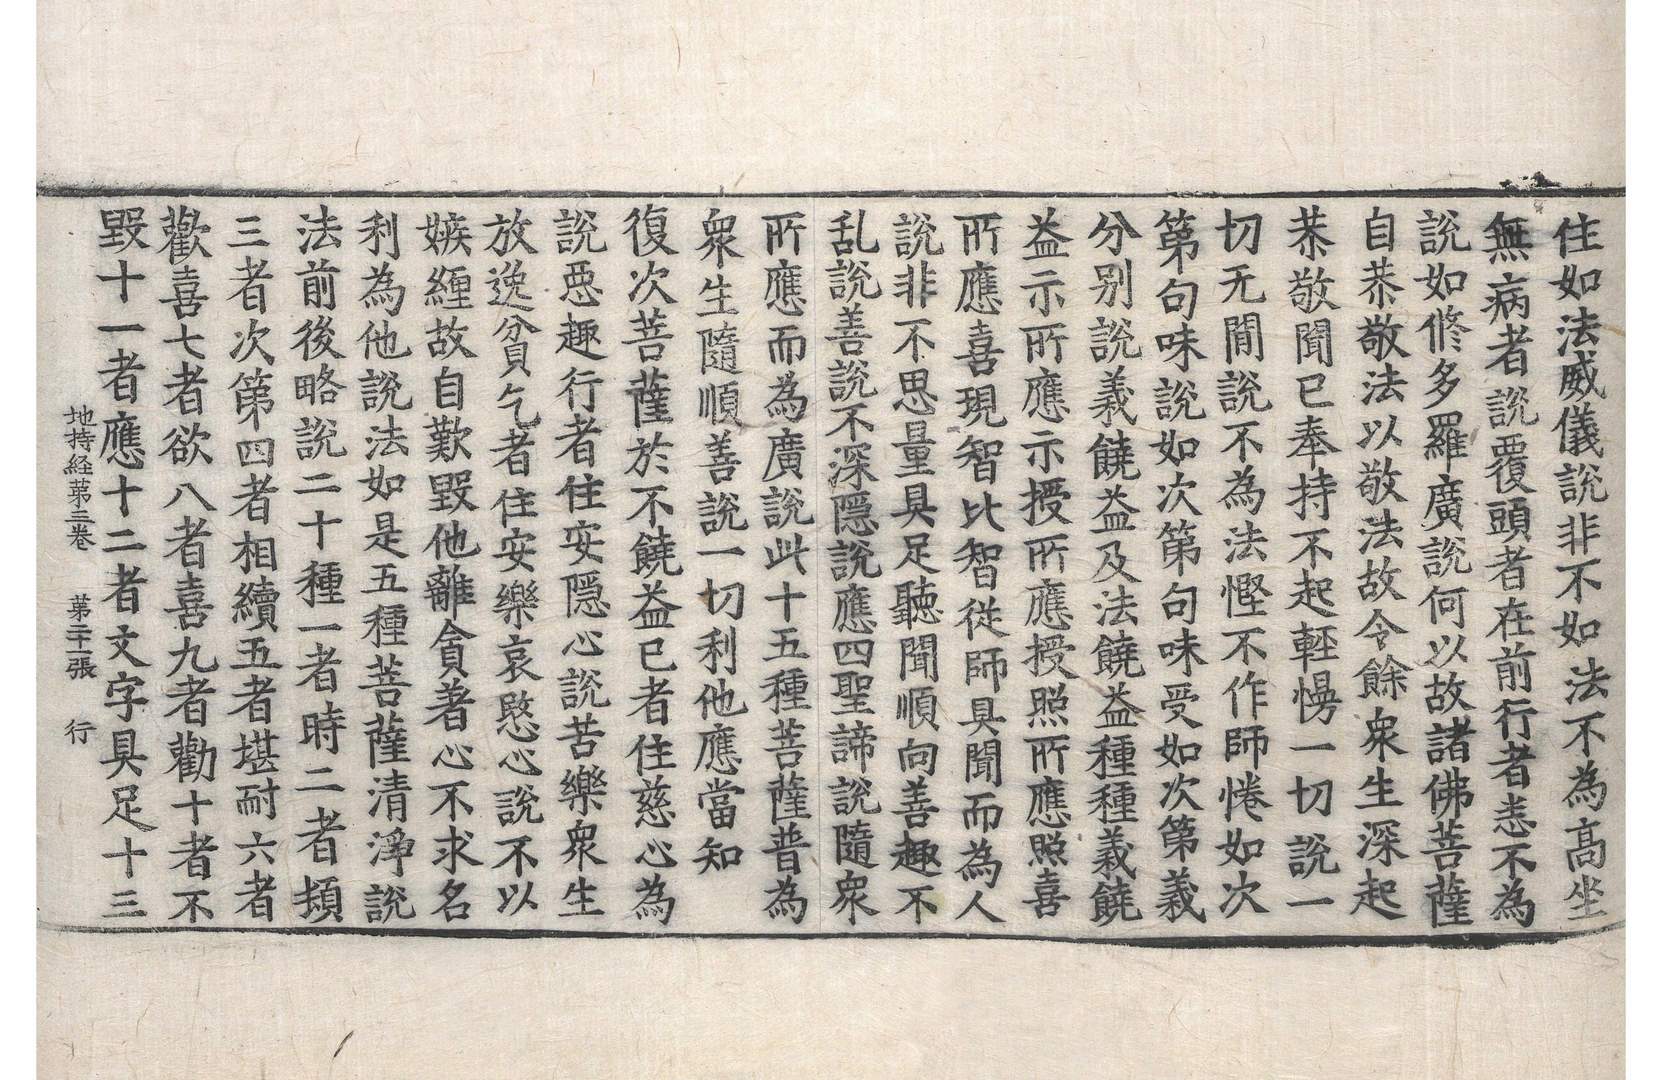 住如法威儀說非不如法不為髙坐
無病者說覆頭者在前行者悉不為
說如修多羅廣說何以故諸佛菩薩
自恭敬法以敬法故令餘衆生深起
恭敬聞已奉持不起輕慢一切說一
切无間說不為法慳不作師惓如次
第句味說如次第句味受如次第義
分別說義饒益及法饒益種種義饒
益示所應示授所應授照所應照喜
所應喜現智比智從師具聞而為人
說非不思量具足聽聞順向善趣不
乱說善說不深隱說應四聖諦說隨衆
所應而為廣說此十五種菩薩普為
衆生隨順善說一切利他應當知
復次菩薩於不饒益已者住慈心為
說惡趣行者住安隱心說苦樂衆生
放逸貧乞者住安樂哀愍心說不以
嫉纏故自歎毀他離貪著心不求名
利為他說法如是五種菩薩清淨說
法前後略說二十種一者時二者頻
三者次第四者相續五者堪耐六者
歡喜七者欲八者喜九者勸十者不
毀十一者應十二者文字具足十三
地持経苐三卷 苐二十一張 行